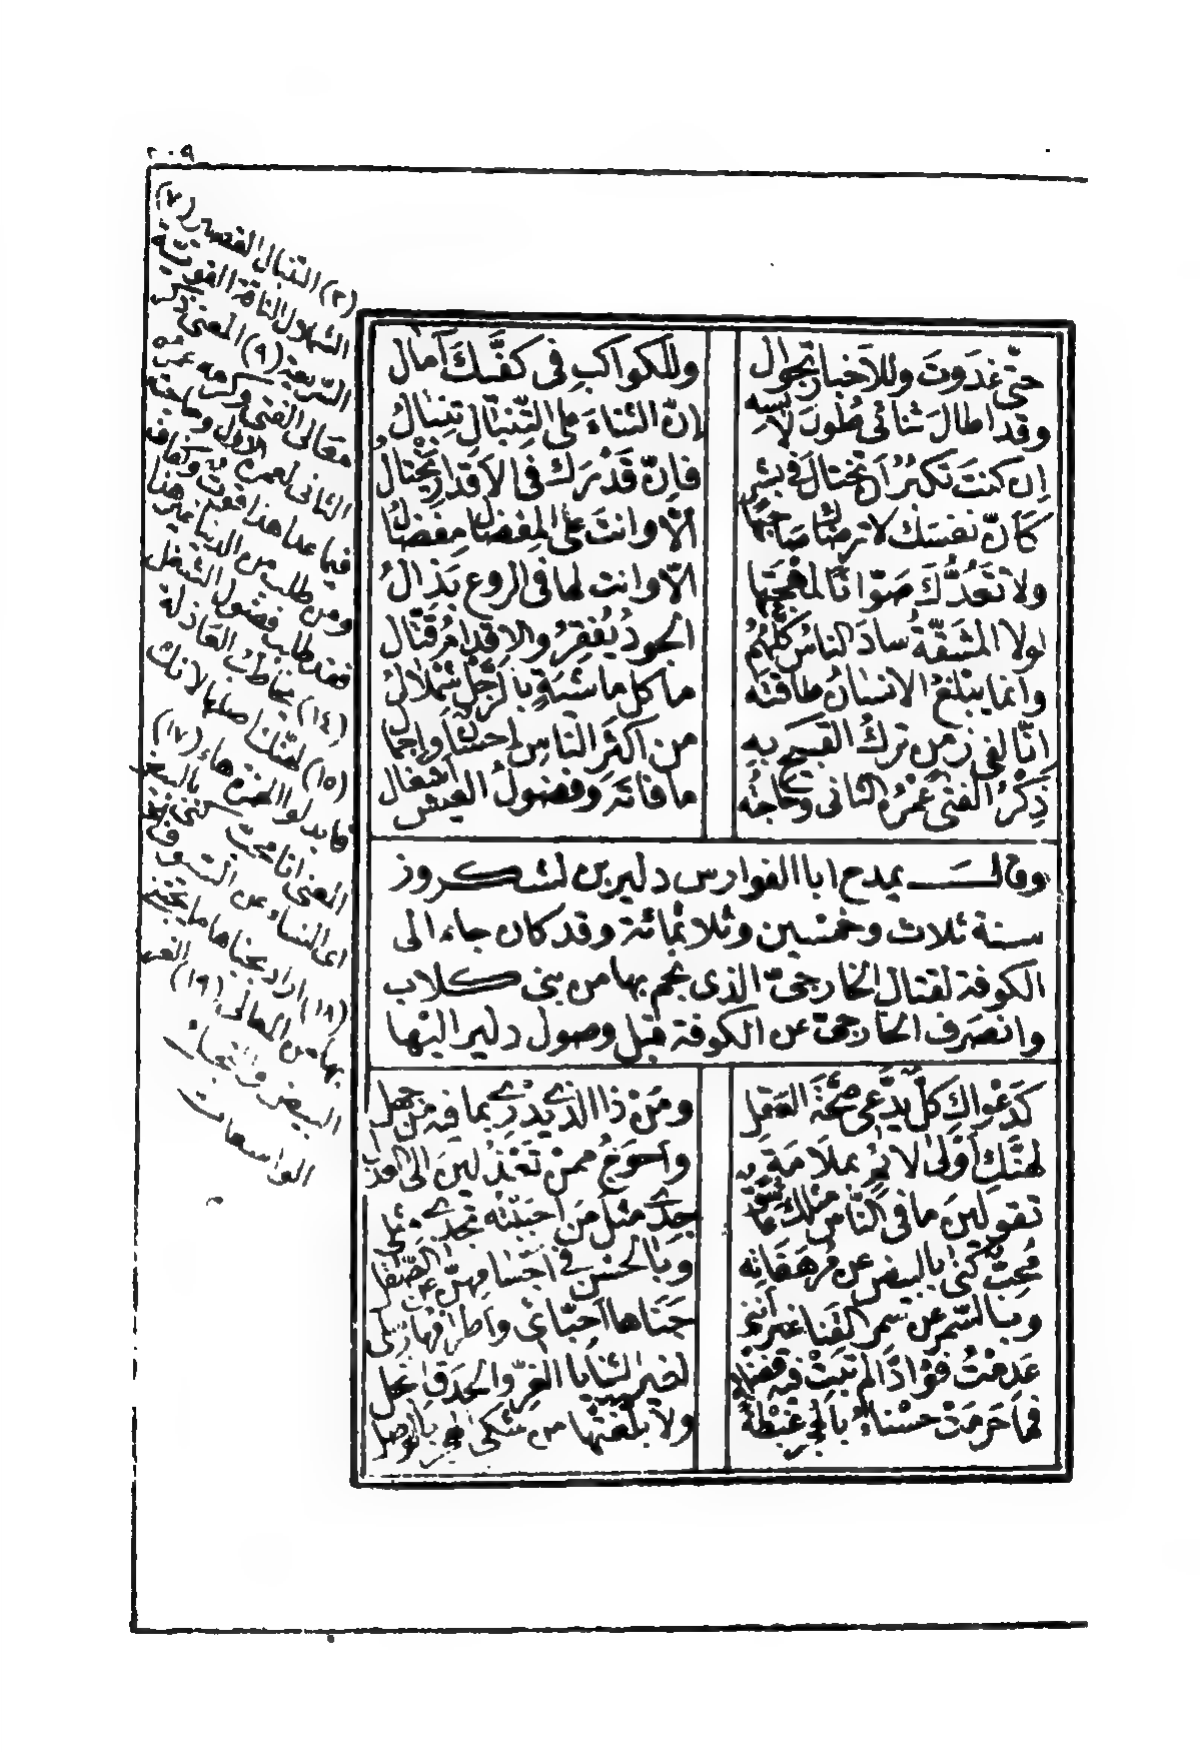 ٢٠٩
حتّى غدوت وللأخبار تجوال وللكواكب فى كفّيك آمال
وقد اطال ثنائى طول لابسه إنّ الثناء على التّنبال تنبال
إن كنت تكبر أن تختال فى بشر فإنّ قدرك فى الاقدار يختال
كأنّ نفسك لا ترضاك صاحبها الّا وانت على المفضال مفضال
ولا تعدّك صوّانا لمهجتها الّا وانت لها فى الروع بذال
لولا المشقّة ساد الناس كلّهم الجود يفقر والاقدام قتال
وانما يبلغ الانسان طاقته ما كل ماشية بالرّجل شملال
إنّا لفى زمن ترك القبيح به من اكثر الناس إحسان واجمال
ذكر الفتى عمره الثانى وحاجته ما فاته وفضول العيش اشغال
وقال يمدح ابا الفوارس دلير بن لشكروز
سنة ثلاث وخمسين وثلاثمائة وقد كان جاء الى
الكوفة لقتال الخارجىّ الذى نجم بها من بنى كلاب
وانصرف الخارجىّ عن الكوفة قبل وصول دلير اليها
كدعواك كل يدّعى صحّة العقل ومن ذا الذى يدرى بما فيه من جهل
لهنّك أولى لائم بملامة واحوج ممن تعذلين الى العذل
تقولين ما فى النّاس مثلك عاشق جدى مثل من احببته تجدى مثلى
محبّ كنى بالبيض عن مرهفاته وبالحسن فى اجسامهنّ عن الصّقل
وبالسّمر عن سمر القنا غير أننى جناها احبّائى واطرافها رسلى
عدمت فؤادًا لم تبت فيه فضلة لغير الثنايا الغرّ والحدق النجل
فما حرمت حسناء بالهجر غبطة ولا بلّغتها من شكى الهجر بالوصل
(٢) التنبال القصير (٧)
الشملال الناقة القوية
السّريعة (٩) المعنى ذكر
الثانى لعمره الاول
فيما عدا هذا
ومن طلب من الدنيا غير هذا
فقد طلب فضول الشغل
(١٤) يخاطب العاذلة
(١٥) لهنّك اصلها لانك
فابدلوا الهمزة هاء (١٧)
المعنى انا محب كنى بالبيض
اى النساء عن السيوف
(١٨) اراد بجناها ما يجتنى
بها من المعالى (١٩) الغر
البيض والنجل
الواسعات